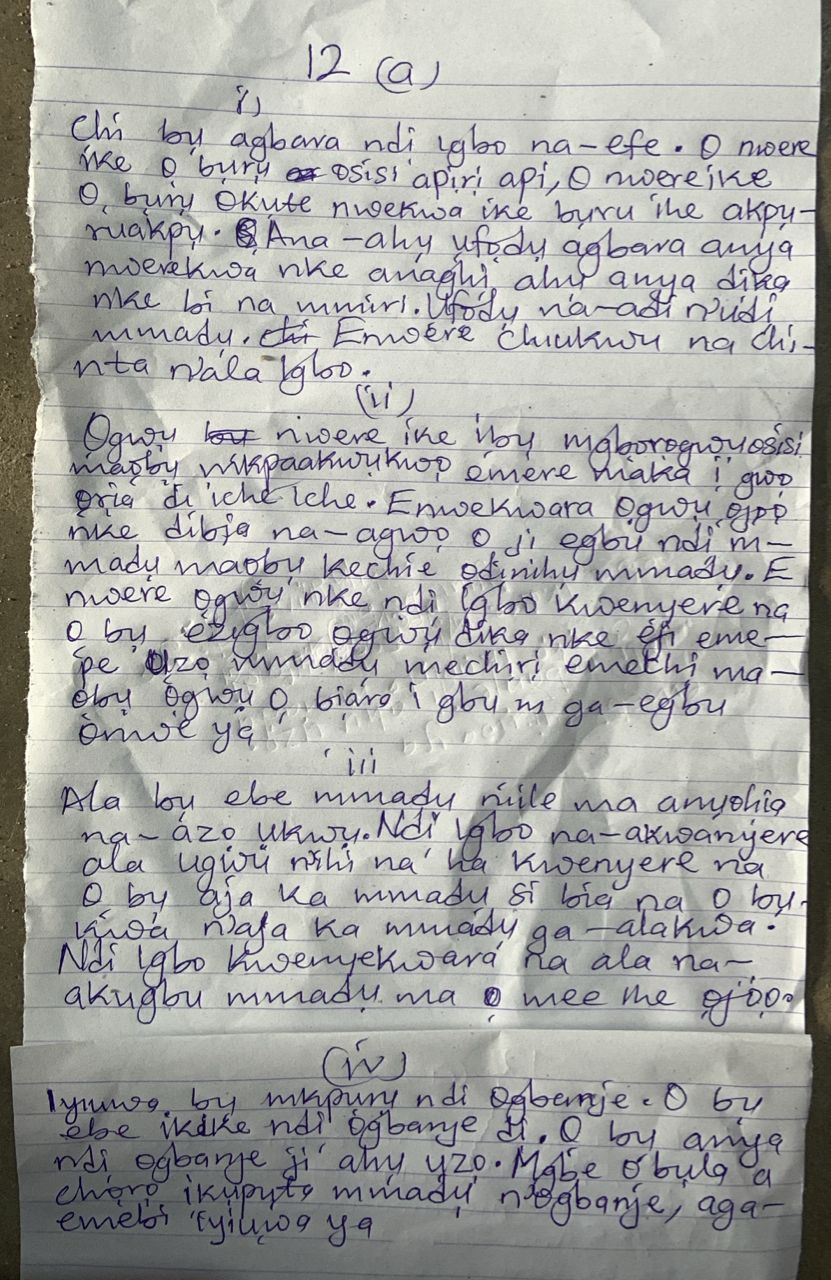 12 (a)
i)
Chi bụ agbara ndi igbo na-efe. O nwere
ike o bụrụ osisi apiri api, O nwere ike
O bụrụ Okute nwekwa ike bụru ihe akpụ-
ruakpụ. Ana-ahụ ụfọdụ agbara anya
nwerekwa nke anaghị ahụ anya dịka
nke bi na mmiri. Ụfọdụ na-adi n'udi
mmadụ. Enwere Chukwu na chi-
nta n'ala Igbo.
(ii)
Ọgwụ nwere ike ịbụ mgborogwụ osisi
maọbụ mkpaakwụkwọ emere maka ị gwọ
ọrịa di iche iche. Enwekwara Ọgwụ ọjọọ
nke dibịa na-agwọ o ji egbu ndi m-
madụ maọbụ kechie ọdịnihụ mmadụ. E
nwere ọgwụ nke ndi Igbo kwenyere na
o bụ ezigbo ọgwụ dịka nke eji eme-
pe ụzọ mmadụ mechiri emechi ma-
ọbụ ọgwụ O bịara i gbu m ga-egbu
onwe ya
iii
Ala bụ ebe mmadụ niile ma anụọhịa
na-azọ ụkwụ. Ndi Igbo na-akwanyere
ala ugwu nihi na ha kwenyere na
O bụ aja ka mmadụ si bịa na O bụ-
kwa n'aja ka mmadụ ga-alakwa.
Ndi Igbo kwenyekwara na ala na-
akụgbu mmadụ ma o mee ihe ọjọọ.
(iv)
Iyiụwa bụ mkpụrụ ndi Ọgbanje. O bụ
ebe ikike ndi ọgbanje dị. O bụ anya
ndi ọgbanje ji ahụ ụzọ. Mgbe ọbụla a
chọrọ ikụpụta mmadụ n'ọgbanje, aga-
emebi iyiụwa ya